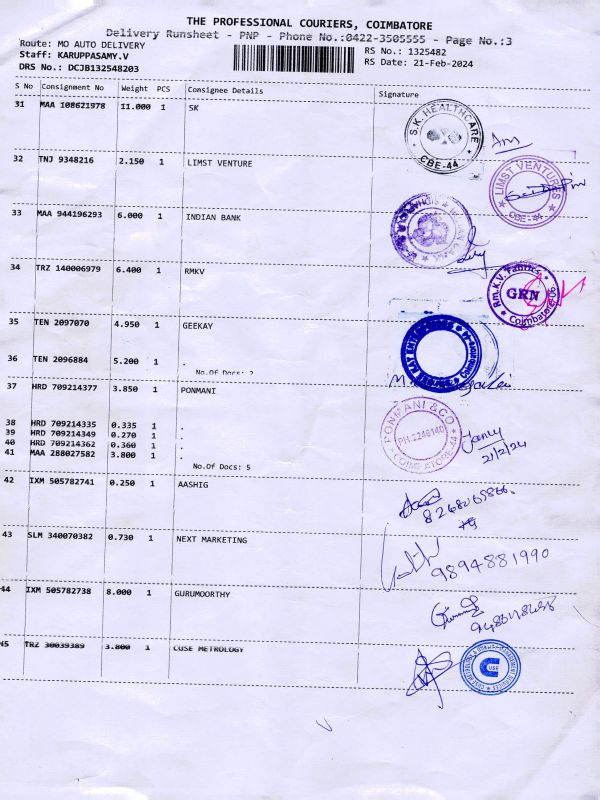 THE PROFESSIONAL COURIERS, COIMBATORE
Delivery Runsheet - PNP - Phone No.:0422-3505555 - Page No.:3
Route: MO AUTO DELIVERY RS No.: 1325482
Staff: KARUPPASAMY.V RS Date: 21-Feb-2024
DRS No.: DCJB132548203
S No Consignment No Weight PCS Consignee Details Signature
31 MAA 108621978 11.000 1 SK
S.K. HEALTHCARE
CBE-44
32 TNJ 9348216 2.150 1 LIMST VENTURE
LIMST VENTURES
CBE-44
33 MAA 944196293 6.000 1 INDIAN BANK
34 TRZ 140006979 6.400 1 RMKV
Rm.K.V. Fabrics
GRN
Coimbatore-06
35 TEN 2097070 4.950 1 GEEKAY
36 TEN 2096884 5.200 1 .
No.Of Docs: 2
37 HRD 709214377 3.850 1 PONMANI
PONMANI & CO
PH:2248140
COIMBATORE-44
38 HRD 709214335 0.335 1 .
39 HRD 709214349 0.270 1 .
40 HRD 709214362 0.360 1 .
41 MAA 288027582 3.800 1 .
21/2/24
No.Of Docs: 5
42 IXM 505782741 0.250 1 AASHIG
43 SLM 340070382 0.730 1 NEXT MARKETING
9894881990
44 IXM 505782738 8.000 1 GURUMOORTHY
45 TRZ 30039389 3.800 1 CUSE METROLOGY
CUSE